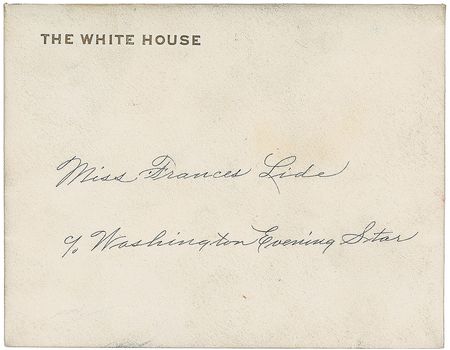 THE WHITE HOUSE
Miss Frances Lide
c/o Washington Evening Star